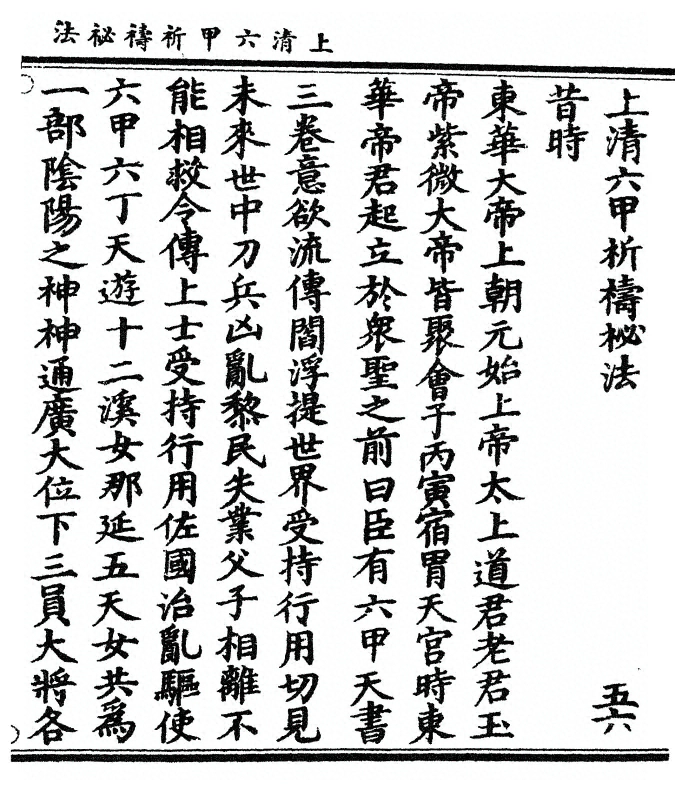 上清六甲祈禱秘法
上清六甲祈禱祕法 五六
昔時
東華大帝上朝元始上帝太上道君老君玉
帝紫微大帝皆聚會于丙寅宿胃天宮時東
華帝君起立於衆聖之前曰臣有六甲天書
三卷意欲流傳閻浮提世界受持行用切見
未來世中刀兵凶亂黎民失業父子相離不
能相救令傳上士受持行用佐國治亂驅使
六甲六丁天遊十二溪女那延五天女共爲
一部陰陽之神神通廣大位下三員大將各